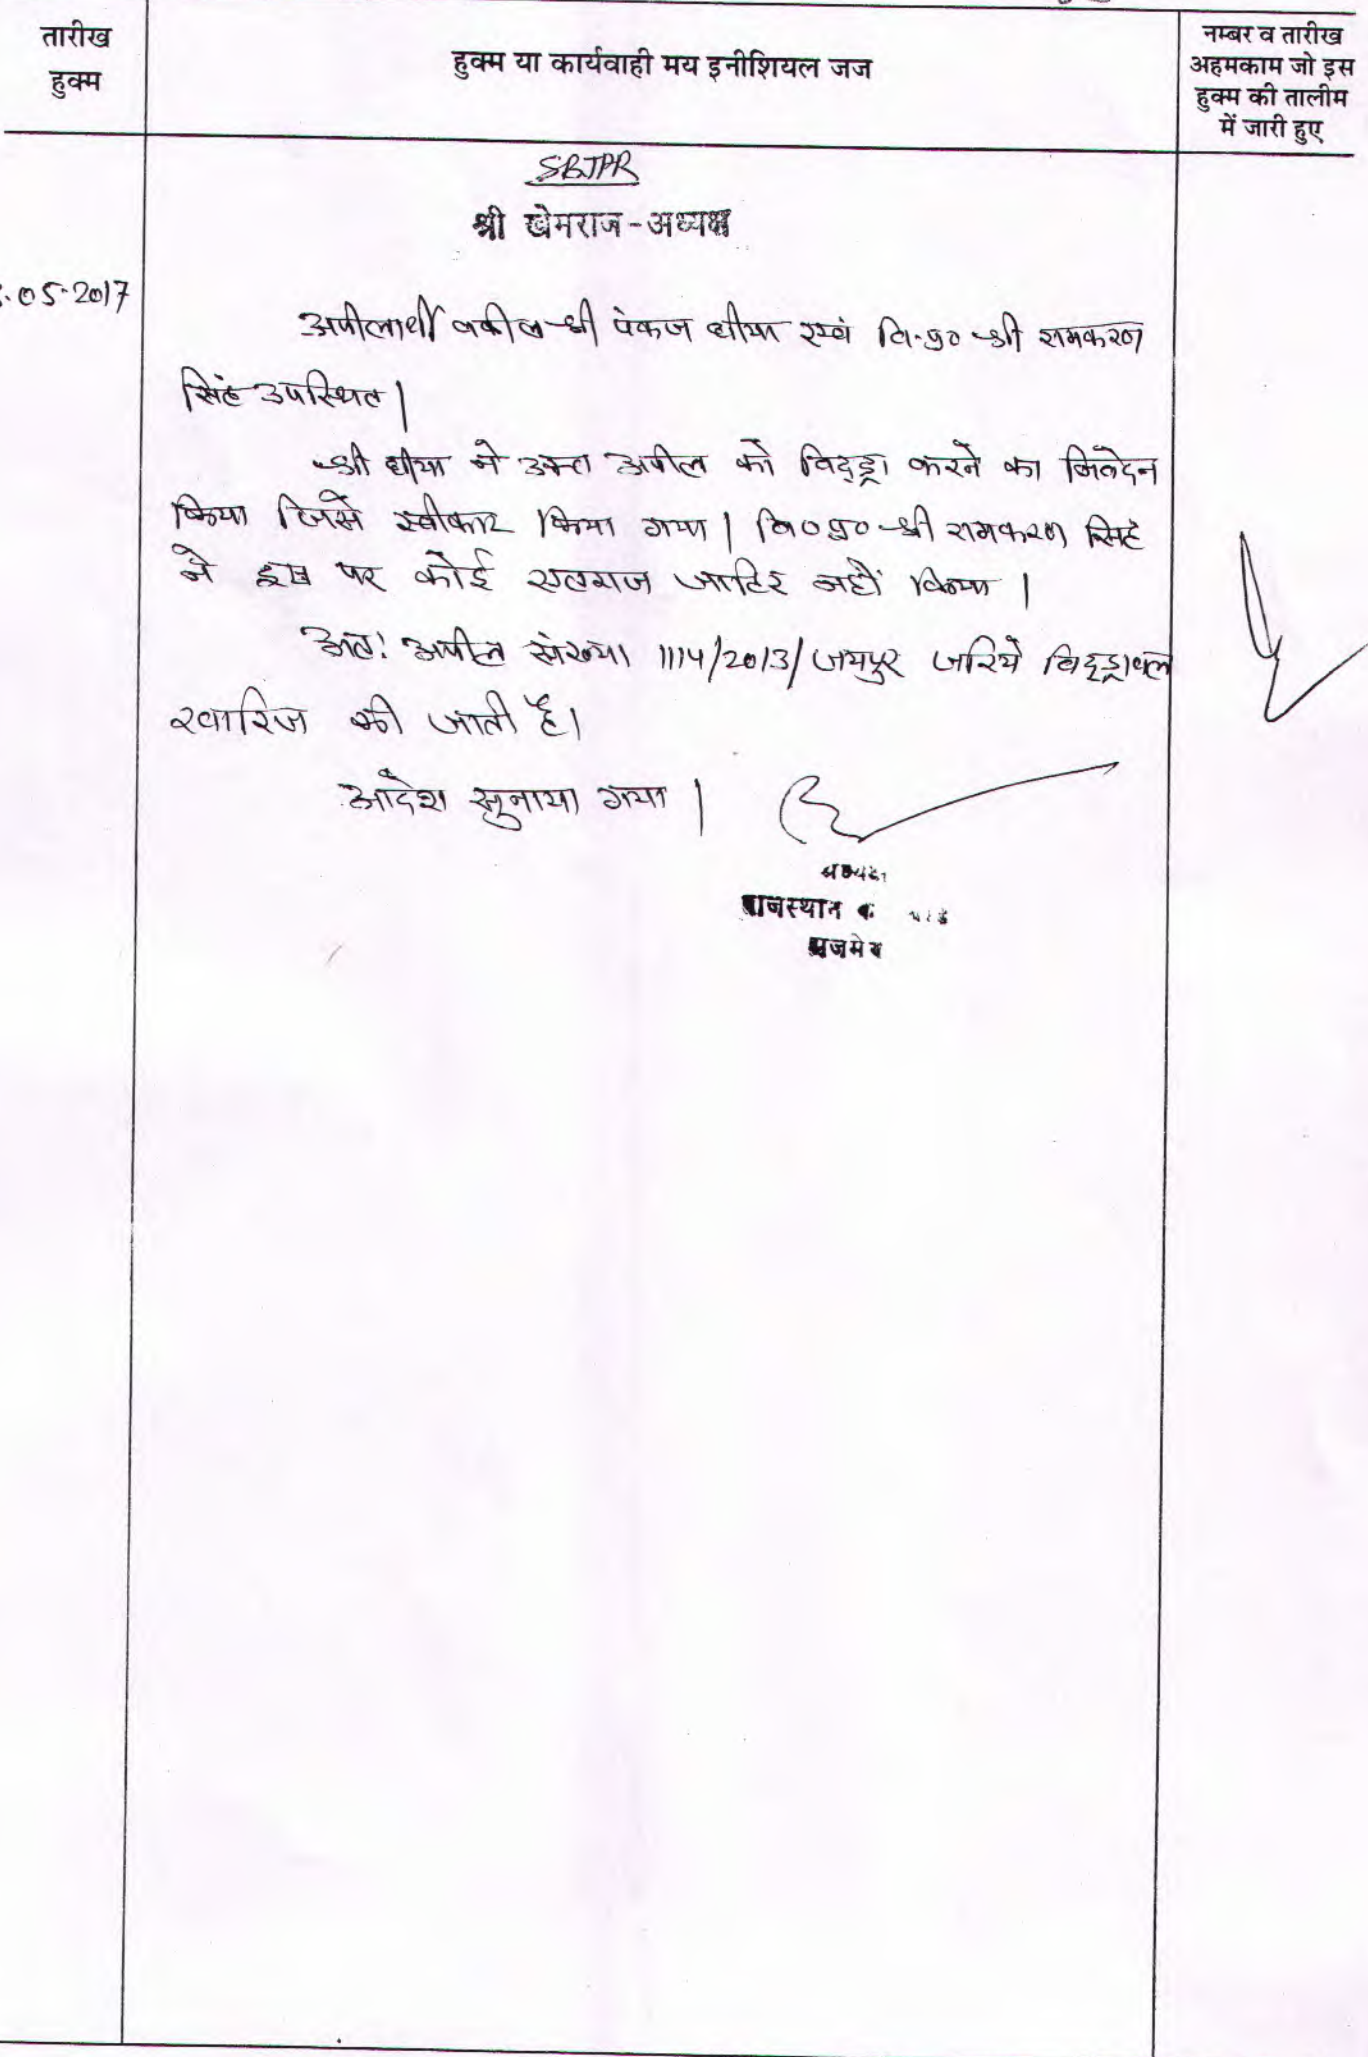 तारीख
हुक्म
हुक्म या कार्यवाही मय इनीशियल जज
नम्बर व तारीख
अहमकाम जो इस
हुक्म की तालीम
में जारी हुए
SBJPR
श्री खेमराज-अध्यक्ष
.05.2017
अपीलार्थी वकील श्री पंकज घीया एवं वि.प्र० श्री रामकरण
सिंह उपस्थित।
श्री घीया ने उक्त अपील को विद्ड्रा करने का निवेदन
किया जिसे स्वीकार किया गया। वि०प्र० श्री रामकरण सिंह
ने इस पर कोई एतराज जाहिर नहीं किया।
अतः अपील संख्या 1114/2013/जयपुर जरिये विद्ड्रावल
खारिज की जाती है।
आदेश सुनाया गया।
अध्यक्ष
राजस्थान
अजमेर